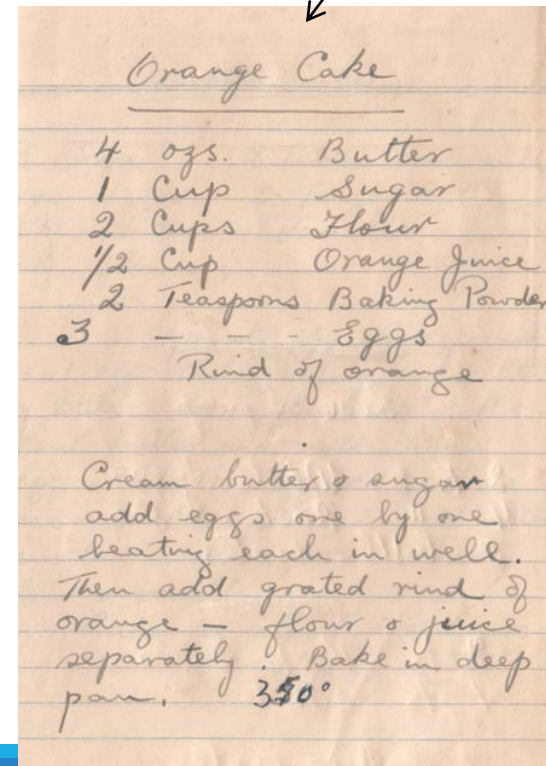 Orange Cake
4 ozs. Butter
1 Cup Sugar
2 Cups Flour
1/2 Cup Orange Juice
2 Teaspoons Baking Powder
3 - - - Eggs
Rind of orange
Cream butter & sugar
add eggs one by one
beating each in well.
Then add grated rind of
orange – flour & juice
separately. Bake in deep
pan. 350°